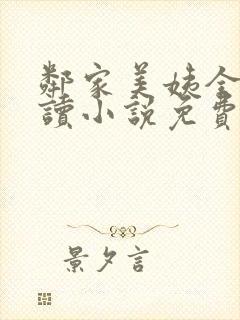 鄰家美姨全
讀小說免費
景夕言